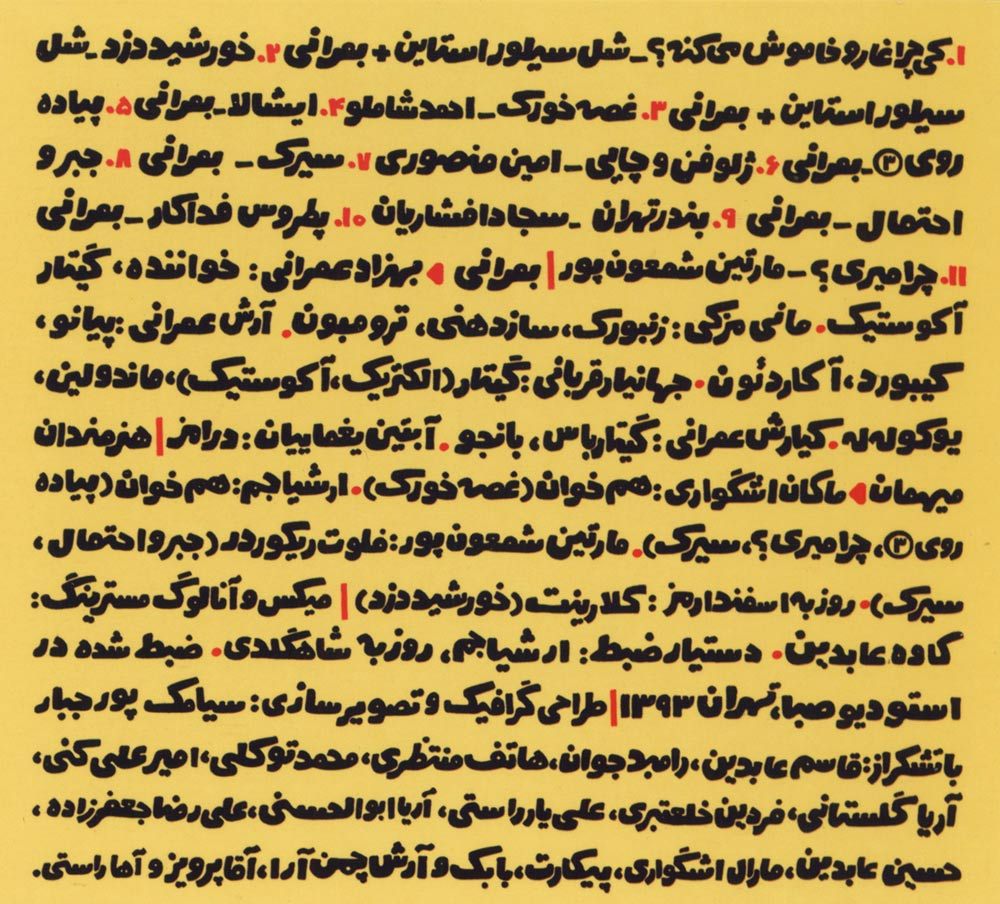 ۱. کی چراغارو خاموش می‌کنه؟ - شل سیلوراستاین + بمرانی ۲. خورشید دزد - شل
سیلوراستاین + بمرانی ۳. غصه خورک - احمد شاملو ۴. ایشالا - بمرانی ۵. پیاده
روی ۳ - بمرانی ۶. ژلوفن و چایی - امین منصوری ۷. سیرک - بمرانی ۸. جبر و
احتمال - بمرانی ۹. بندر تهران - سجاد افشاریان ۱۰. پطروس فداکار - بمرانی
۱۱. چرا میری؟ - مارتین شمعون‌پور | بمرانی ◀ بهزاد عمرانی: خواننده، گیتار
آکوستیک. مانی مزکی: زنبورک، سازدهنی، ترومبون. آرش عمرانی: پیانو،
کیبورد، آکاردئون. جهانیار قربانی: گیتار (الکتریک، آکوستیک)، ماندولین،
یوکوله‌له. کیارش عمرانی: گیتار باس، بانجو. آبتین یغماییان: درامز | هنرمندان
میهمان ◀ ماکان اشگواری: هم‌خوان (غصه خورک). ارشیا جم: هم‌خوان (پیاده
روی ۳، چرا میری؟، سیرک). مارتین شمعون‌پور: فلوت ریکوردر (جبر و احتمال،
سیرک). روزبه اسفندارمز: کلارینت (خورشید دزد) | میکس و آنالوگ مسترینگ:
کاوه عابدین. دستیار ضبط: ارشیا جم، روزبه شاهگلدی. ضبط شده در
استودیو صبا، تهران ۱۳۹۳ | طراحی گرافیک و تصویرسازی: سیامک پورجبار
با تشکر از: قاسم عابدین، رامبد جوان، هاتف منتظری، محمد توکلی، امیرعلی کنی،
آریا گلستانی، فردین خلعتبری، علی یار راستی، آریا ابوالحسنی، علی‌رضا جعفرزاده،
حسین عابدین، مارال اشگواری، پیکارت، بابک و آرش چمن‌آرا، آقا پرویز و آها راستی.